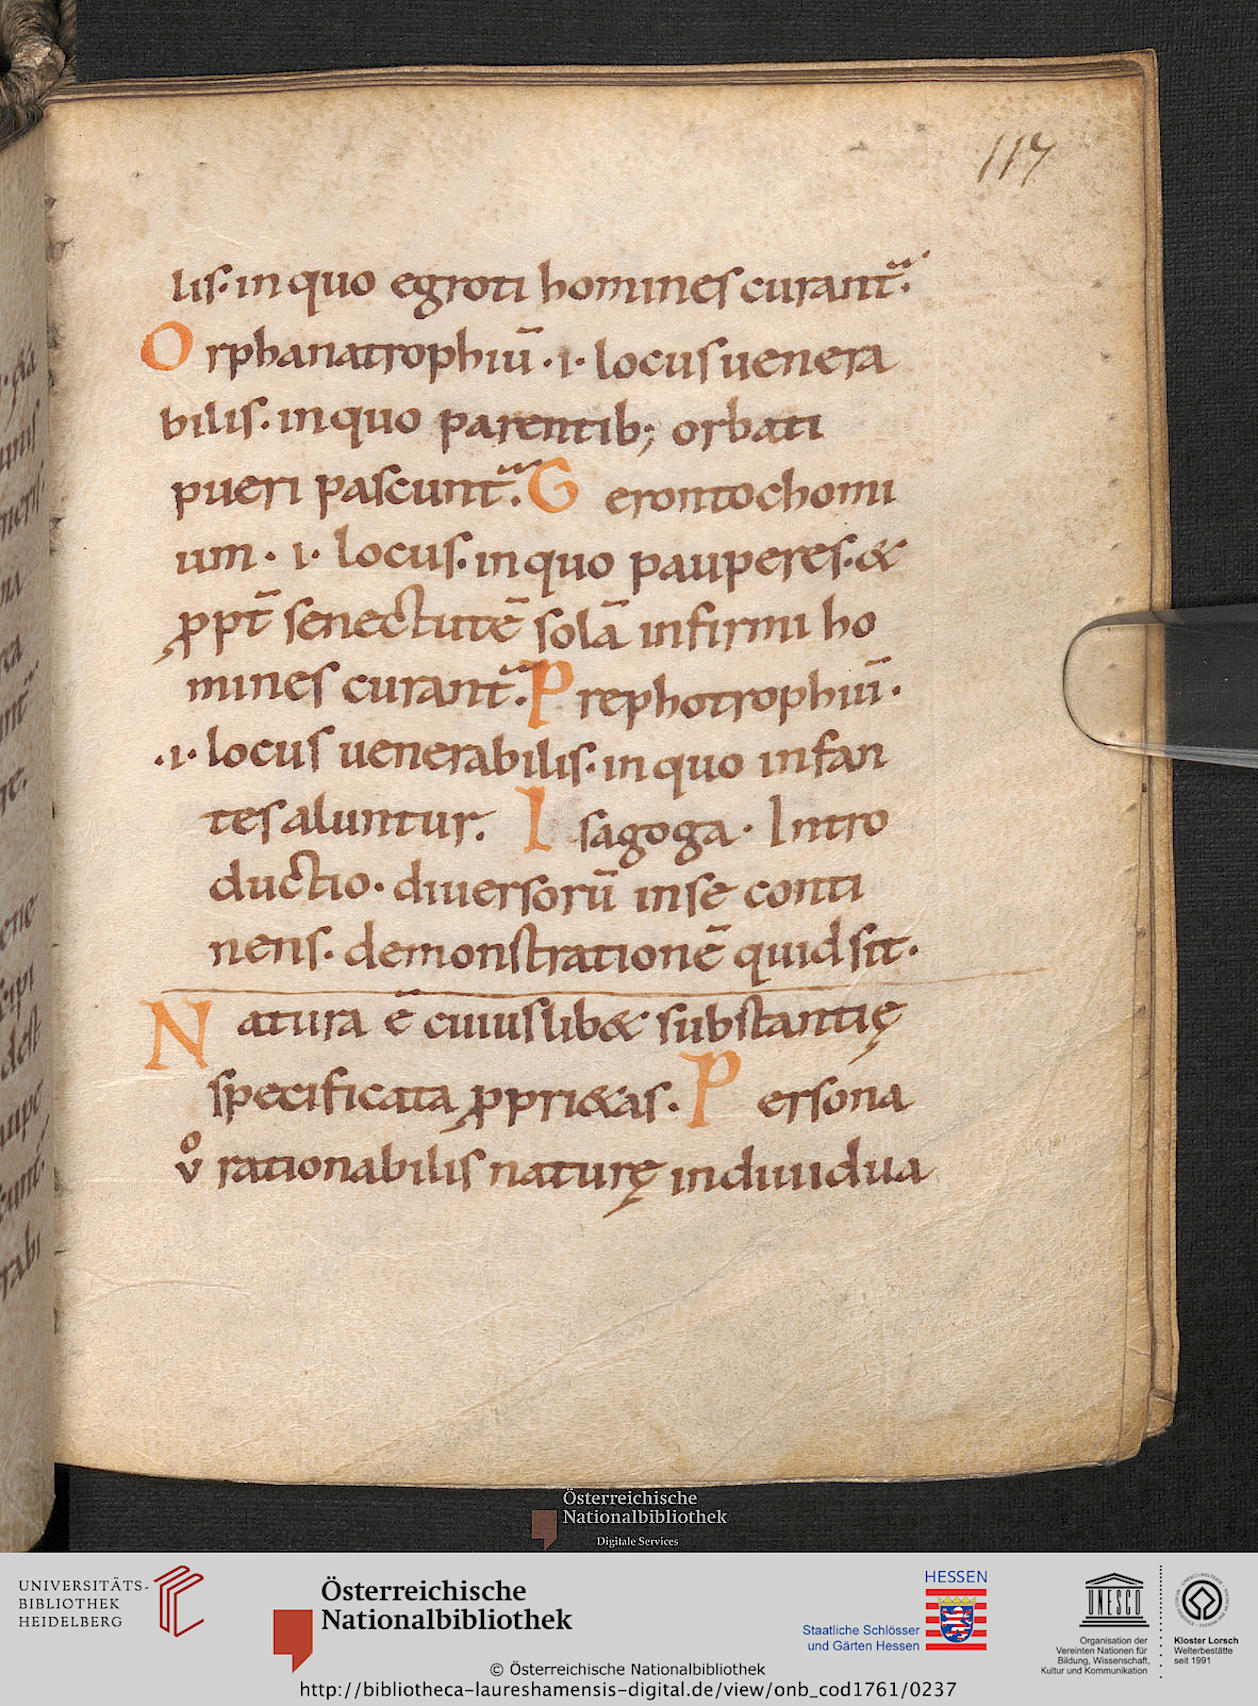 117
lis· in quo egroti homines curant᷑.
Orphanatrophiū ·i· locus uenera
bilis. in quo parentib; orbati
pueri pascunt᷑. Gerontochomi
um · i· locus. in quo pauperes· &
ꝓpt̄ senectutē solā infirmi ho
mines curant᷑. Prephotrophiū·
·i· locus uenerabilis· in quo infan
tes aluntur. Isagoga· Intro
ductio· diuersorū in se conti
nens· demonstrationē quid sit·
Natura ē cuiuslib& substantię
specificata ꝓpri&as· Persona
vͦ rationabilis naturę indiuidua
Österreichische
Nationalbibliothek
Digitale Services
UNIVERSITÄTS-
BIBLIOTHEK
HEIDELBERG
Österreichische
Nationalbibliothek
HESSEN
Staatliche Schlösser
und Gärten Hessen
UNESCO
Organisation der
Vereinten Nationen für
Bildung, Wissenschaft,
Kultur und Kommunikation
Kloster Lorsch
Welterbestätte
seit 1991
© Österreichische Nationalbibliothek
http://bibliotheca-laureshamensis-digital.de/view/onb_cod1761/0237